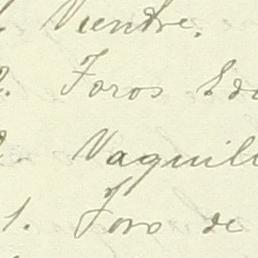 Vientre.
Foros Edu
Vaquill
1. Foro de